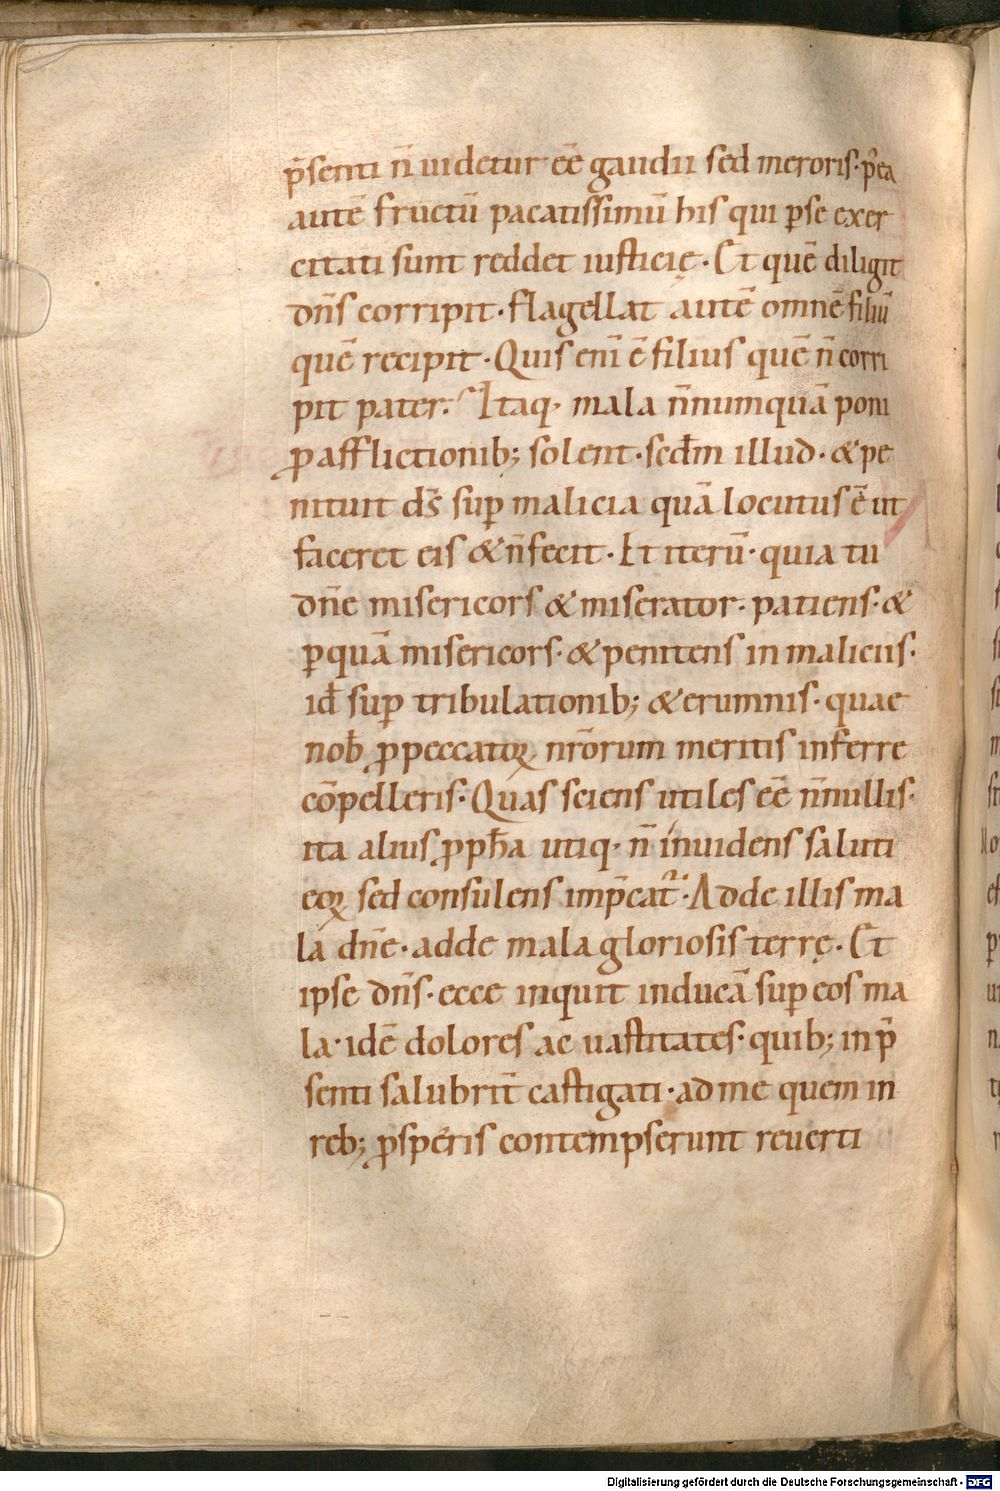 p̄senti n̄ uidetur ee̅ gaudii sed meroris· p̾ea
aute̅ fructu̅ pacatissimu̅ his qui ꝑ se exer
citati sunt reddet iusticię. Et que̅ diligit
dn̄s corripit. flagellat aute̅ omne̅ filiu̅
que̅ recipit. Quis eni̅ e̅ filius que̅ n̄ corri
pit pater. Itaq· mala n̄numqua̅ poni
ꝓ afflictionib; solent. scđm illud. & pe
nituit ds̄ suꝑ malicia qua̅ locutus e̅ ut
faceret eis & n̄ fecit. Et iteru̅· quia tu
dn̄e misericors & miserator. patiens· &
ꝑqua̅ misericors· & penitens in maliciis·
id̄ suꝑ tribulationib; & erumnis· quae
nob̄ ꝓ peccatoꝝ nr̄orum meritis inferre
co̅pelleris. Quas sciens utiles ee̅ n̄nullis·
ita alius ꝓph̄a utiq· n̄ inuidens saluti
eoꝝ sed consulens imp̄cat᷑. Adde illis ma
la dn̄e. adde mala gloriosis terrę. Et
ipse dn̄s. ecce inquit induca̅ suꝑ eos ma
la· ide̅ dolores ac uastitates· quib; in p̄
senti salubrit̄ castigati· ad me quem in
reb; ꝓsperis contempserunt reuerti
Digitalisierung gefördert durch die Deutsche Forschungsgemeinschaft - DFG